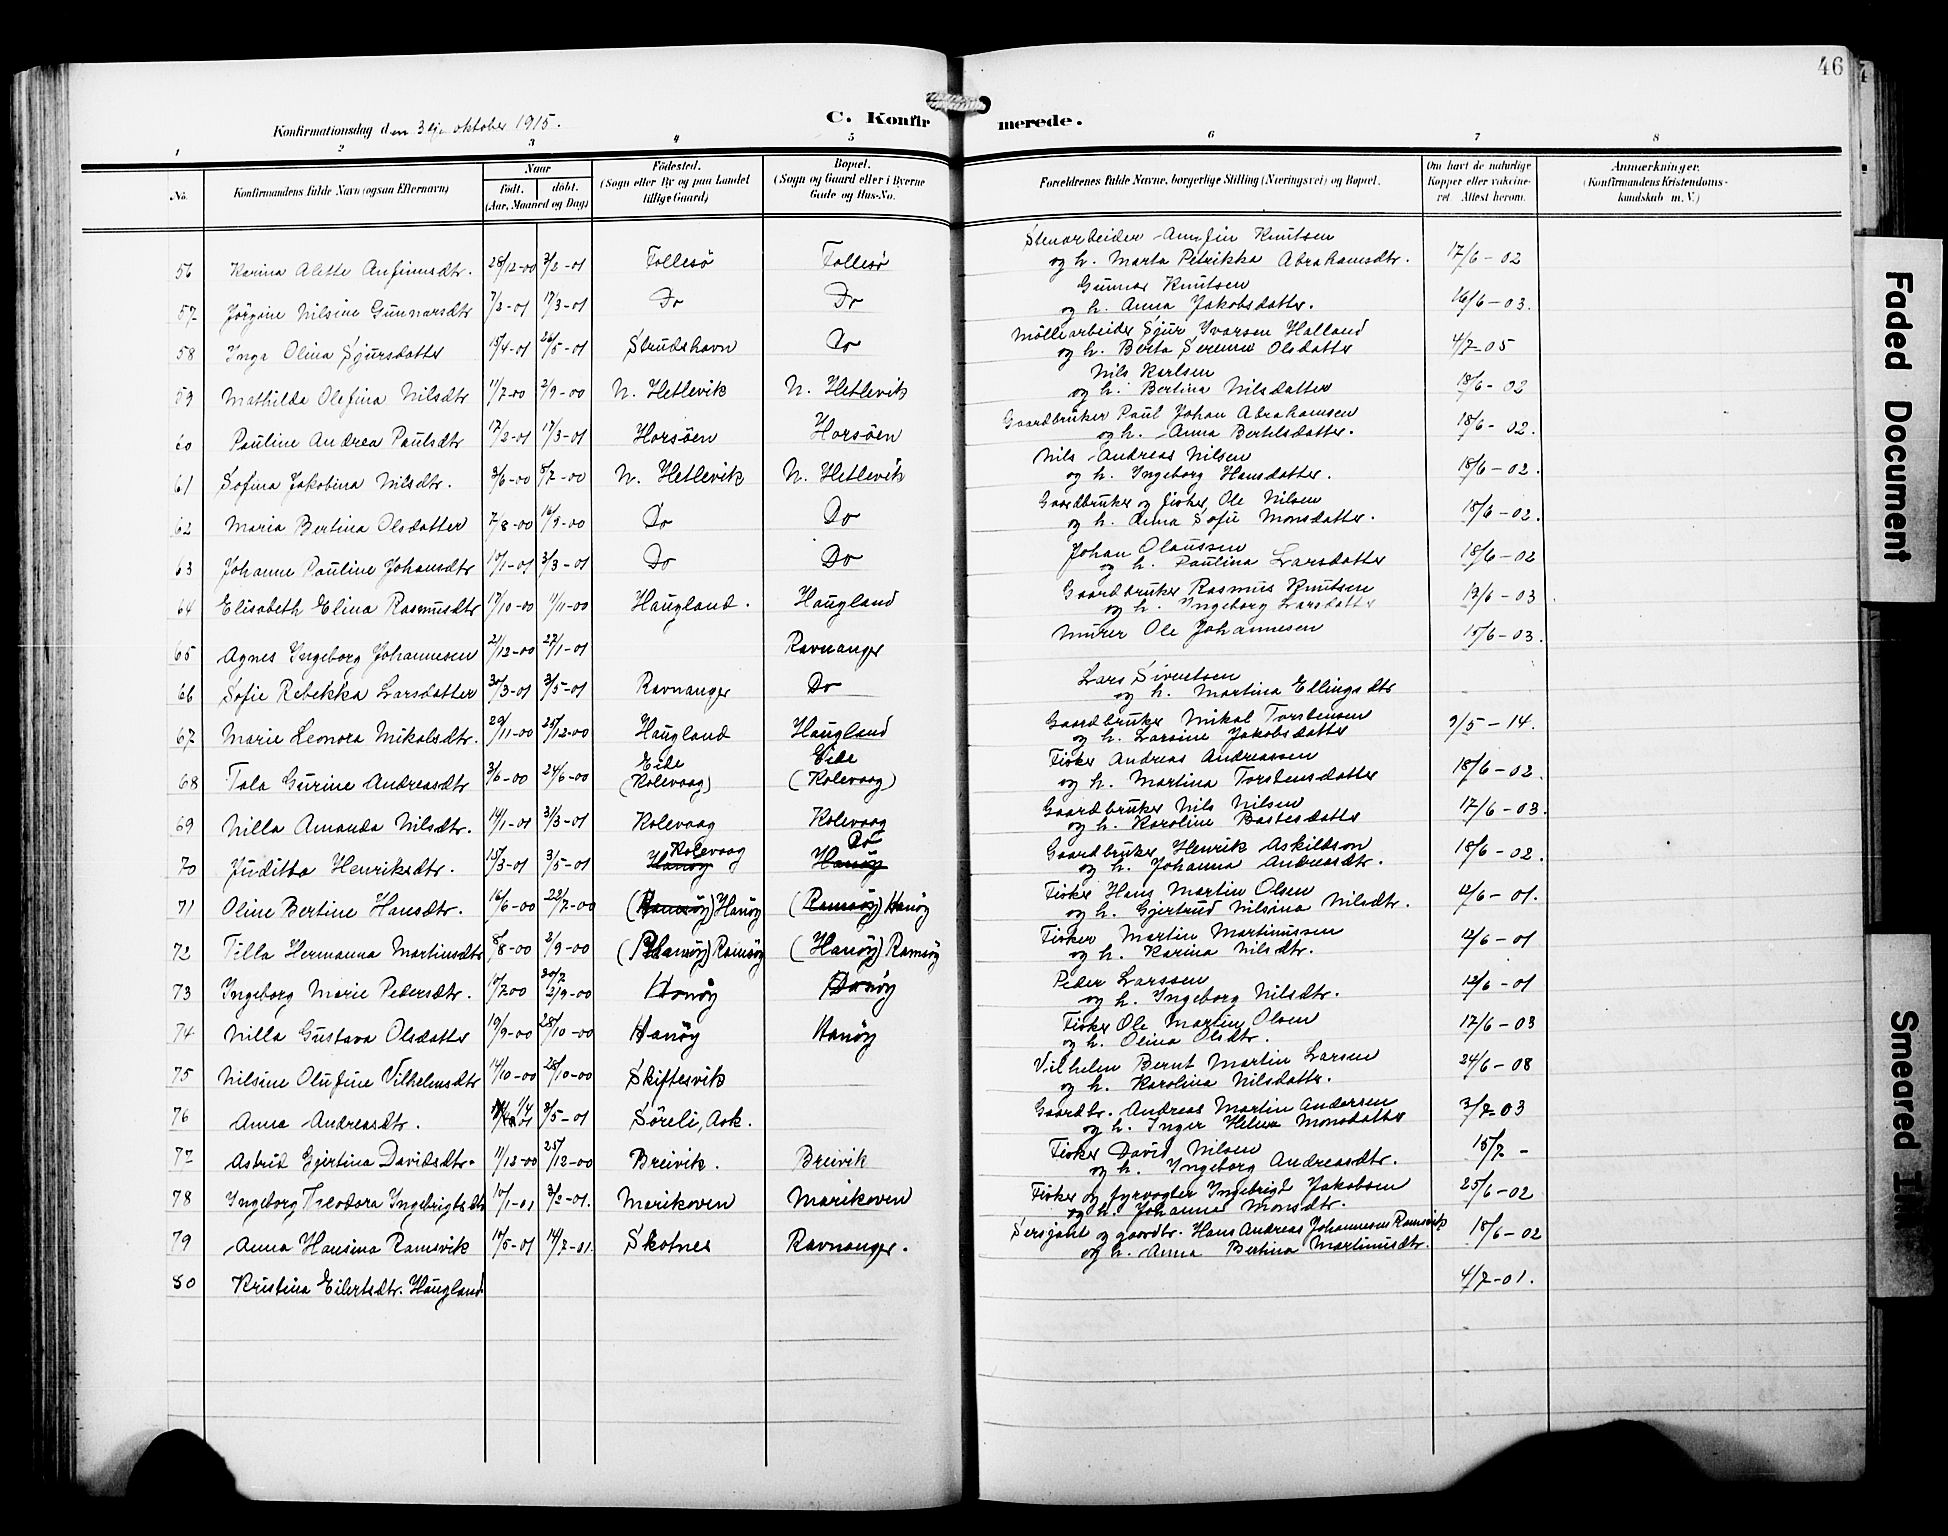 46
Konfirmationsdag den 3dje oktober 1915.
C. Konfirmerede.
1 2 3 4 5 6 7 8
No. Konfirmandens fulde Navn (ogsaa Efternavn)
Naar
født. døbt.
(Aar, Maaned og Dag)
Fødested.
(Sogn eller By og paa Landet
tillige Gaard)
Bopæl.
(Sogn og Gaard eller i Byerne
Gade og Hus-No.
Forældrenes fulde Navne, borgerlige Stilling (Næringsvei) og Bopæl.
Om havt de naturlige
Kopper eller vakcine-
ret. Attest herom.
Anmærkninger.
(Konfirmandens Kristendoms-
kundskab m. V.)
56 Karina Alette Anfinnsdtr. 28/12-00 3/2-01 Follesö Follesö Stenarbeider Annfin Knutsen 17/6-02
og h. Marta Petrikka Abrahamsdtr.
57 Jörgine Nilsine Gunnarsdtr 7/2-01 17/3-01 Do Do Gunnar Knutsen 16/6-03.
og h. Anna Jakobsdatter.
58 Inga Olina Sjursdatter 15/4-01 26/5-01 Strudshavn Do Möllearbeider Sjur Ivarsen Halland 4/7-05
og h. Berta Serina Olsdatter
59 Mathilda Olefina Nilsdtr 11/7-00 2/9-00 N. Hetlevik N. Hetlevik Nils Karlsen 18/6-02
og h. Bertina Nilsdatter
60 Pauline Andrea Paulsdtr 17/2-01 17/3-01 Horsöen Horsöen Gaardbruker Paul Johan Abrahamsen 18/6-02.
og h. Anna Bertelsdatter.
61 Sofina Jakobina Nilsdtr. 9/6-00 8/7-00 N. Hetlevik N. Hetlevik Nils Andreas Nilsen 18/6-02.
og h. Ingeborg Hansdatter.
62 Maria Bertina Olsdatter 7/8-00 16/9-00 Do Do Gaardbruker og fisker Ole Nilsen 18/6-02.
og h. Anna Sofie Monsdatter.
63 Johanne Pauline Johansdtr 10/1-01 3/3-01 Do Do Johan Olaussen 18/6-02
og h. Paulina Larsdatter
64 Elisabeth Elina Rasmusdtr 17/10-00 11/11-00 Haugland. Haugland Gaardbruker Rasmus Knutsen 19/6-03
og h. Ingeborg Larsdatter
65 Agnes Ingeborg Johannesen 21/12-00 27/1-01 Ravnanger Murer Ole Johannesen 15/6-03.
66 Sofie Rebekka Larsdatter 30/3-01 3/5-01 Ravnanger Do Lars Sivertsen
og h. Martina Ellingsdtr
67 Marie Leonora Mikalsdtr. 29/11-00 25/12-00 Haugland Haugland Gaardbruker Mikal Torstensen 9/5-14.
og h. Larsine Jakobsdatter
68 Tala Gurine Andreasdtr 3/6-00 24/6-00 Eide (Kolevaag) Eide (Kolevaag) Fisker Andreas Andreassen 18/6-02.
og h. Martina Torstensdatter
69 Nilla Amanda Nilsdtr. 14/1-01 31/3-01 Kolevaag Kolevaag Gaardbruker Nils Nilsen 17/6-03.
og h. Karoline Bastesdatter
70 Juditta Henriksdtr. 15/3-01 3/5-01 Hanöy Kolevaag Hanöy Do Gaardbruker Henrik Askildson 18/6-02.
og h. Johanna Andreasdtr.
71 Oline Bertine Hansdtr. 16/6-00 22/7-00 (Ramsöy) Hanöy (Ramsöy) Hanöy Fisker Hans Martin Olsen 12/6-01.
og h. Gjertrud Nilsina Nilsdtr.
72 Tilla Hermanna Martinsdtr 8/8-00 2/9-00 (Hanöy) Ramsöy (Hanöy) Ramsöy Fisker Martin Martinussen 12/6-01
og h. Karina Nilsdtr.
73 Ingeborg Marie Pedersdtr. 10/7-00 2/9-00 Hanöy Hanöy Peder Larssen 12/6-01
og h. Ingeborg Nilsdtr.
74 Nilla Gustava Olsdatter 19/9-00 28/10-00 Hanöy Hanöy Fisker Ole Martin Olsen 17/6-03
og h. Olina Olsdtr.
75 Nilsine Olufine Vilhelmsdtr 14/10-00 28/10-00 Skiftesvik Vilhelm Bernt Martin Larsen 24/6-08
og h. Karolina Nilsdatter.
76 Anna Andreasdtr. 8/5-01 Söreli, Ask. Gaardbr. Andreas Martin Andersen 3/7-03
og h. Inger Helena Monsdatter
77 Astrid Gjertina Davidsdtr. 11/12-00 25/12-00 Breivik. Breivik Fisker David Nilsen 15/7 -
og h. Ingeborg Andreasdtr.
78 Ingeborg Teodora Ingebrigtsdtr 10/1-01 3/2-01. Marikoven Marikoven Fisker og fyrvogter Ingebrigt Jakobsen 25/6-02
og h. Johanna Monsdtr.
79 Anna Hansina Ramsvik 10/5-01 14/7-01. Skotnes Ravnanger. Sersjant og gaardbr. Hans Andreas Johannesen Ramsvik 18/6-02
og h. Anna Bertina Martinusdtr.
80 Kristina Eilertsdtr. Haugland. 4/7-01.
Faded Document
Smeared Ink